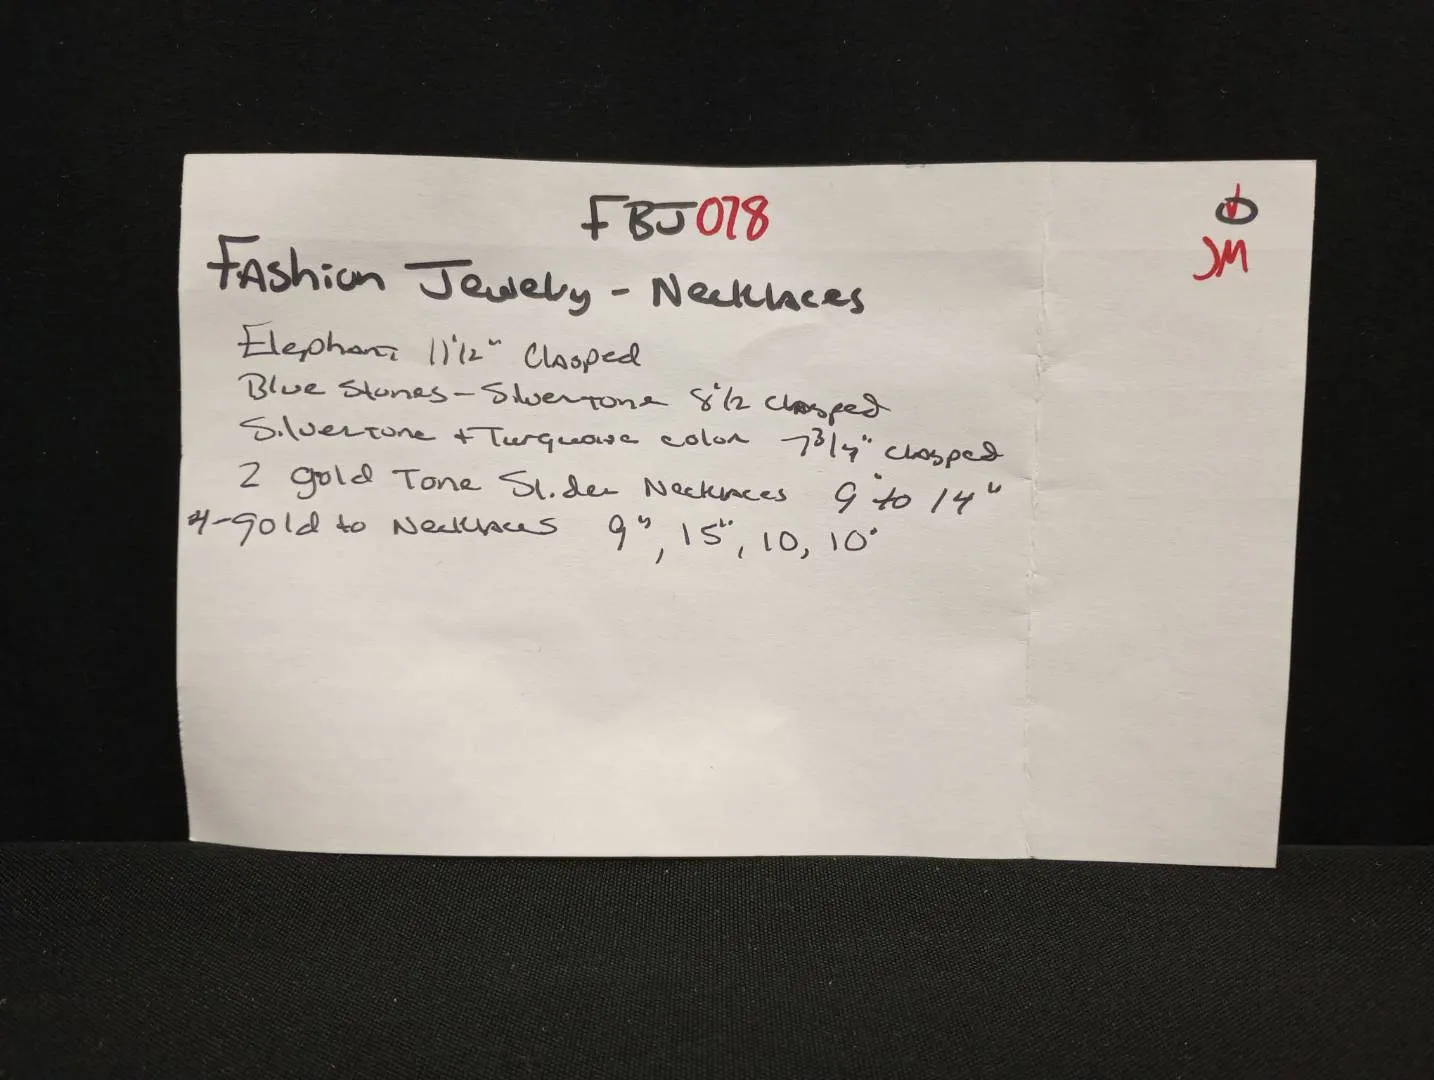 FBJ078
JM
FAshion Jewelry - Necklaces
Elephant 11 1/2" Clasped
Blue Stones - Silvertone 8 1/2 clasped
Silvertone + Turquoise color 7 3/4" clasped
2 gold Tone Slider Necklaces 9" to 14"
4-gold to Necklaces 9", 15", 10, 10"